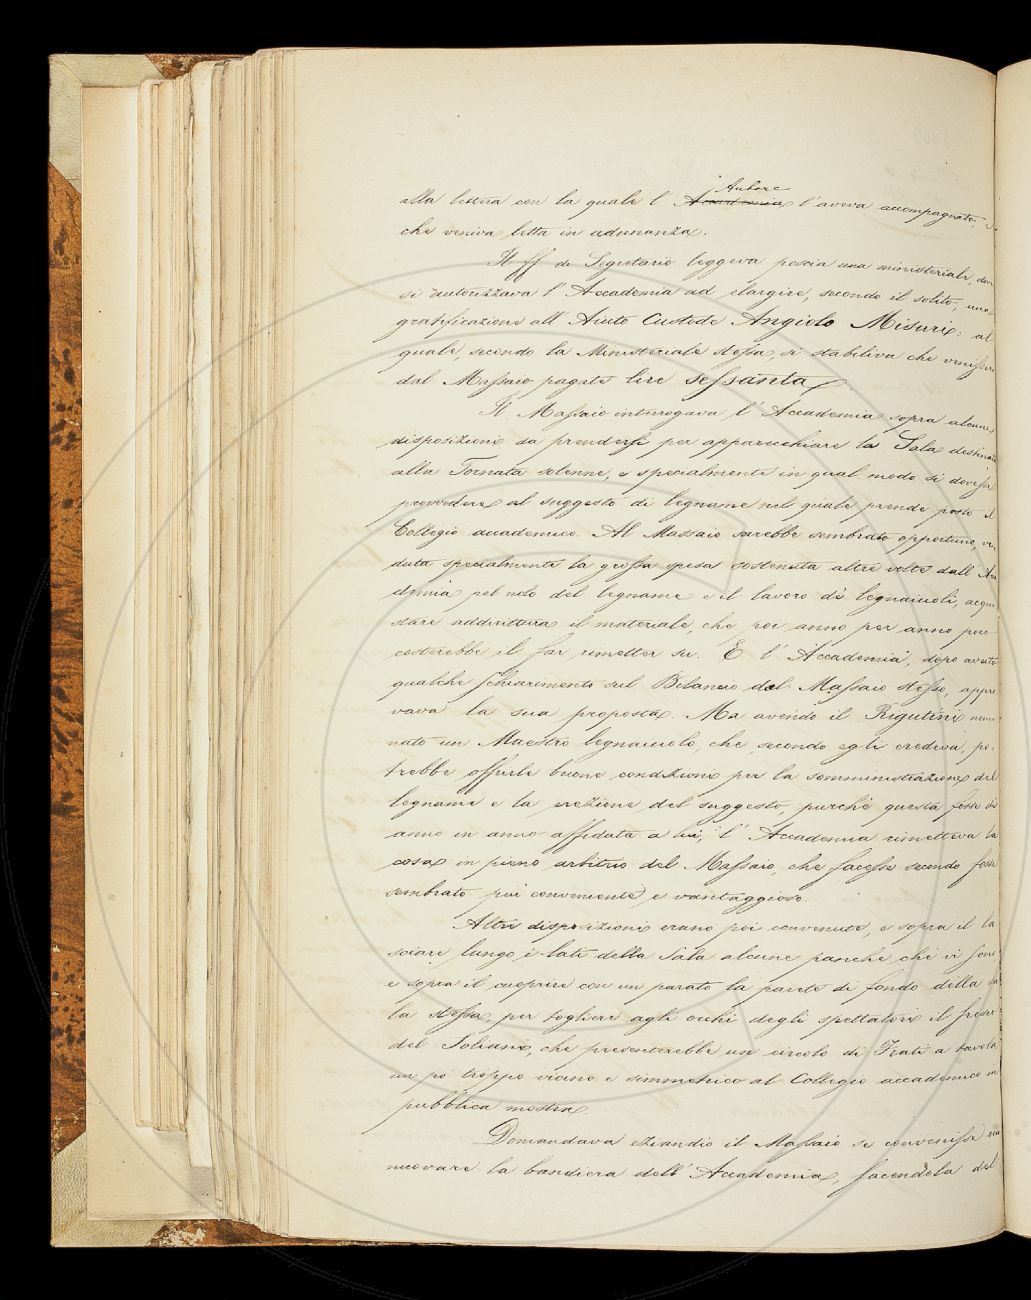 Autore
alla lettera con la quale l' Accademia l'aveva accompagnato,
che veniva letta in adunanza.
Il ff. di Segretario leggeva poscia una ministeriale, dove
si autorizzava l'Accademia ad elargire, secondo il solito, una
gratificazione all'Aiuto Custode Angiolo Misuri: al
quale, secondo la Ministeriale stessa, si stabiliva che venissero
dal Massaio pagate lire sessanta.
Il Massaio interrogava l'Accademia sopra alcune
disposizioni da prendersi per apparecchiare la Sala destinata
alla Tornata solenne, e specialmente in qual modo si dovesse
provvedere al suggesto di legname nel quale prende posto il
Collegio accademico. Al Massaio sarebbe sembrato opportuno, ve-
duta specialmente la grossa spesa sostenuta altre volte dall'Acca
demia pel nolo del legname e il lavoro di legnaiuoli, acqui
stare addirittura il materiale, che poi anno per anno poco
costerebbe il far rimetter su. E l'Accademia, dopo avuto
qualche schiarimento sul Bilancio dal Massaio stesso, appro
vava la sua proposta. Ma avendo il Rigutini nomi-
nato un Maestro legnaiuolo, che, secondo egli credeva, po-
trebbe offrirle buone condizioni per la somministrazione del
legname e la erezione del suggesto, purchè questa fosse di
anno in anno affidata a lui, l'Accademia rimetteva la
cosa in pieno arbitrio del Massaio, che facesse secondo fosse
sembrato più conveniente e vantaggioso.
Altre disposizioni erano poi convenute, e sopra il la
sciare lungo i lati della Sala alcune panche che vi sono,
e sopra il cuoprire con un parato la parete di fondo della Sa
la stessa, per togliere agli occhi degli spettatori il fresco
del Soliani, che presenterebbe un circolo di Frati a tavola
un po' troppo vicino e simmetrico al Collegio accademico in
pubblica mostra.
Domandava eziandio il Massaio se convenisse rin
nuovare la bandiera dell'Accademia, facendola del